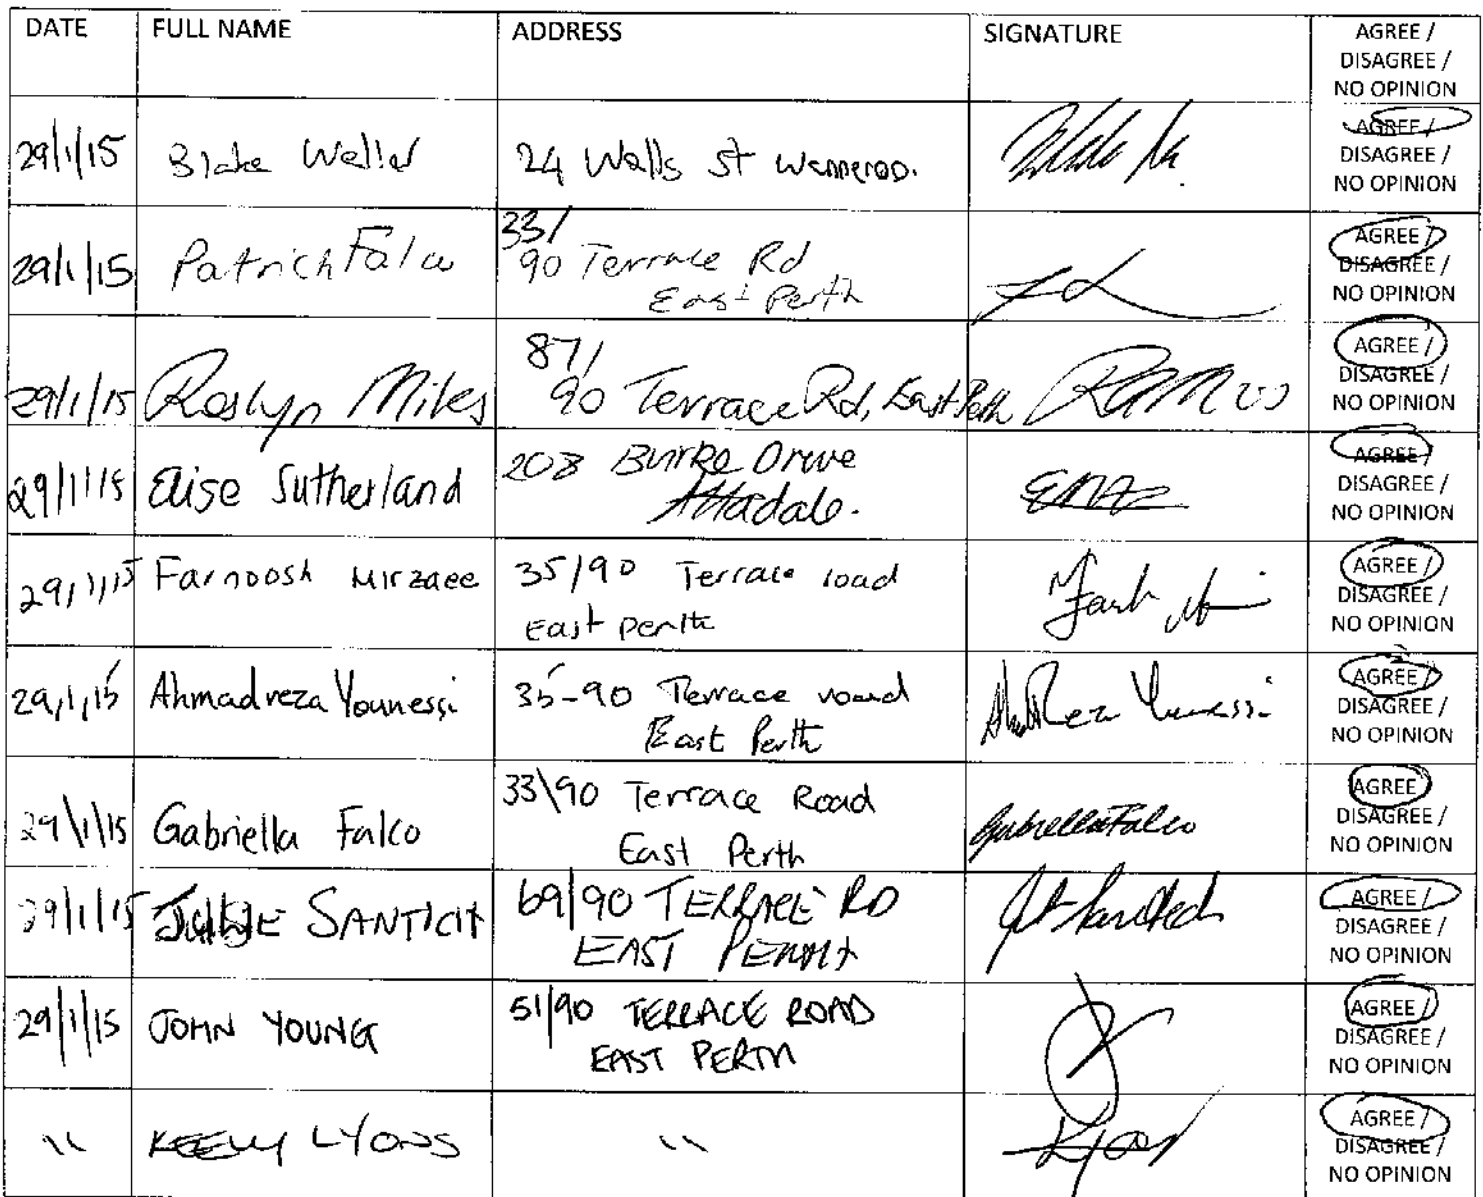 DATE FULL NAME ADDRESS SIGNATURE AGREE /
DISAGREE /
NO OPINION
29/1/15 Blake Weller 24 Walls St Wanneroo. AGREE /
DISAGREE /
NO OPINION
29/1/15 Patrich Falco 33/
90 Terrace Rd
East Perth
AGREE /
DISAGREE /
NO OPINION
29/1/15 Roslyn Miles 87/
90 Terrace Rd, East Perth
AGREE /
DISAGREE /
NO OPINION
29/1/15 Elise Sutherland 208 Burke Drive
Attadale.
AGREE /
DISAGREE /
NO OPINION
29/1/15 Farnoosh Mirzaee 35/90 Terrace road
East perth
AGREE /
DISAGREE /
NO OPINION
29/1/15 Ahmadreza Younessi 35-90 Terrace road
East Perth
AhmadReza Younessi
AGREE /
DISAGREE /
NO OPINION
29/1/15 Gabriella Falco 33\90 Terrace Road
East Perth
Gabriella Falco
AGREE
DISAGREE /
NO OPINION
29/1/15 SANTICH 69/90 TERRACE RD
EAST PERTH
AGREE /
DISAGREE /
NO OPINION
29/1/15 JOHN YOUNG 51/90 TERRACE ROAD
EAST PERTH
AGREE /
DISAGREE /
NO OPINION
" KEELY LYONS " Lyons AGREE /
DISAGREE /
NO OPINION